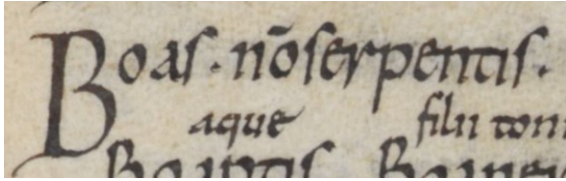 Boas · nō serpentis ·
aque filii toni